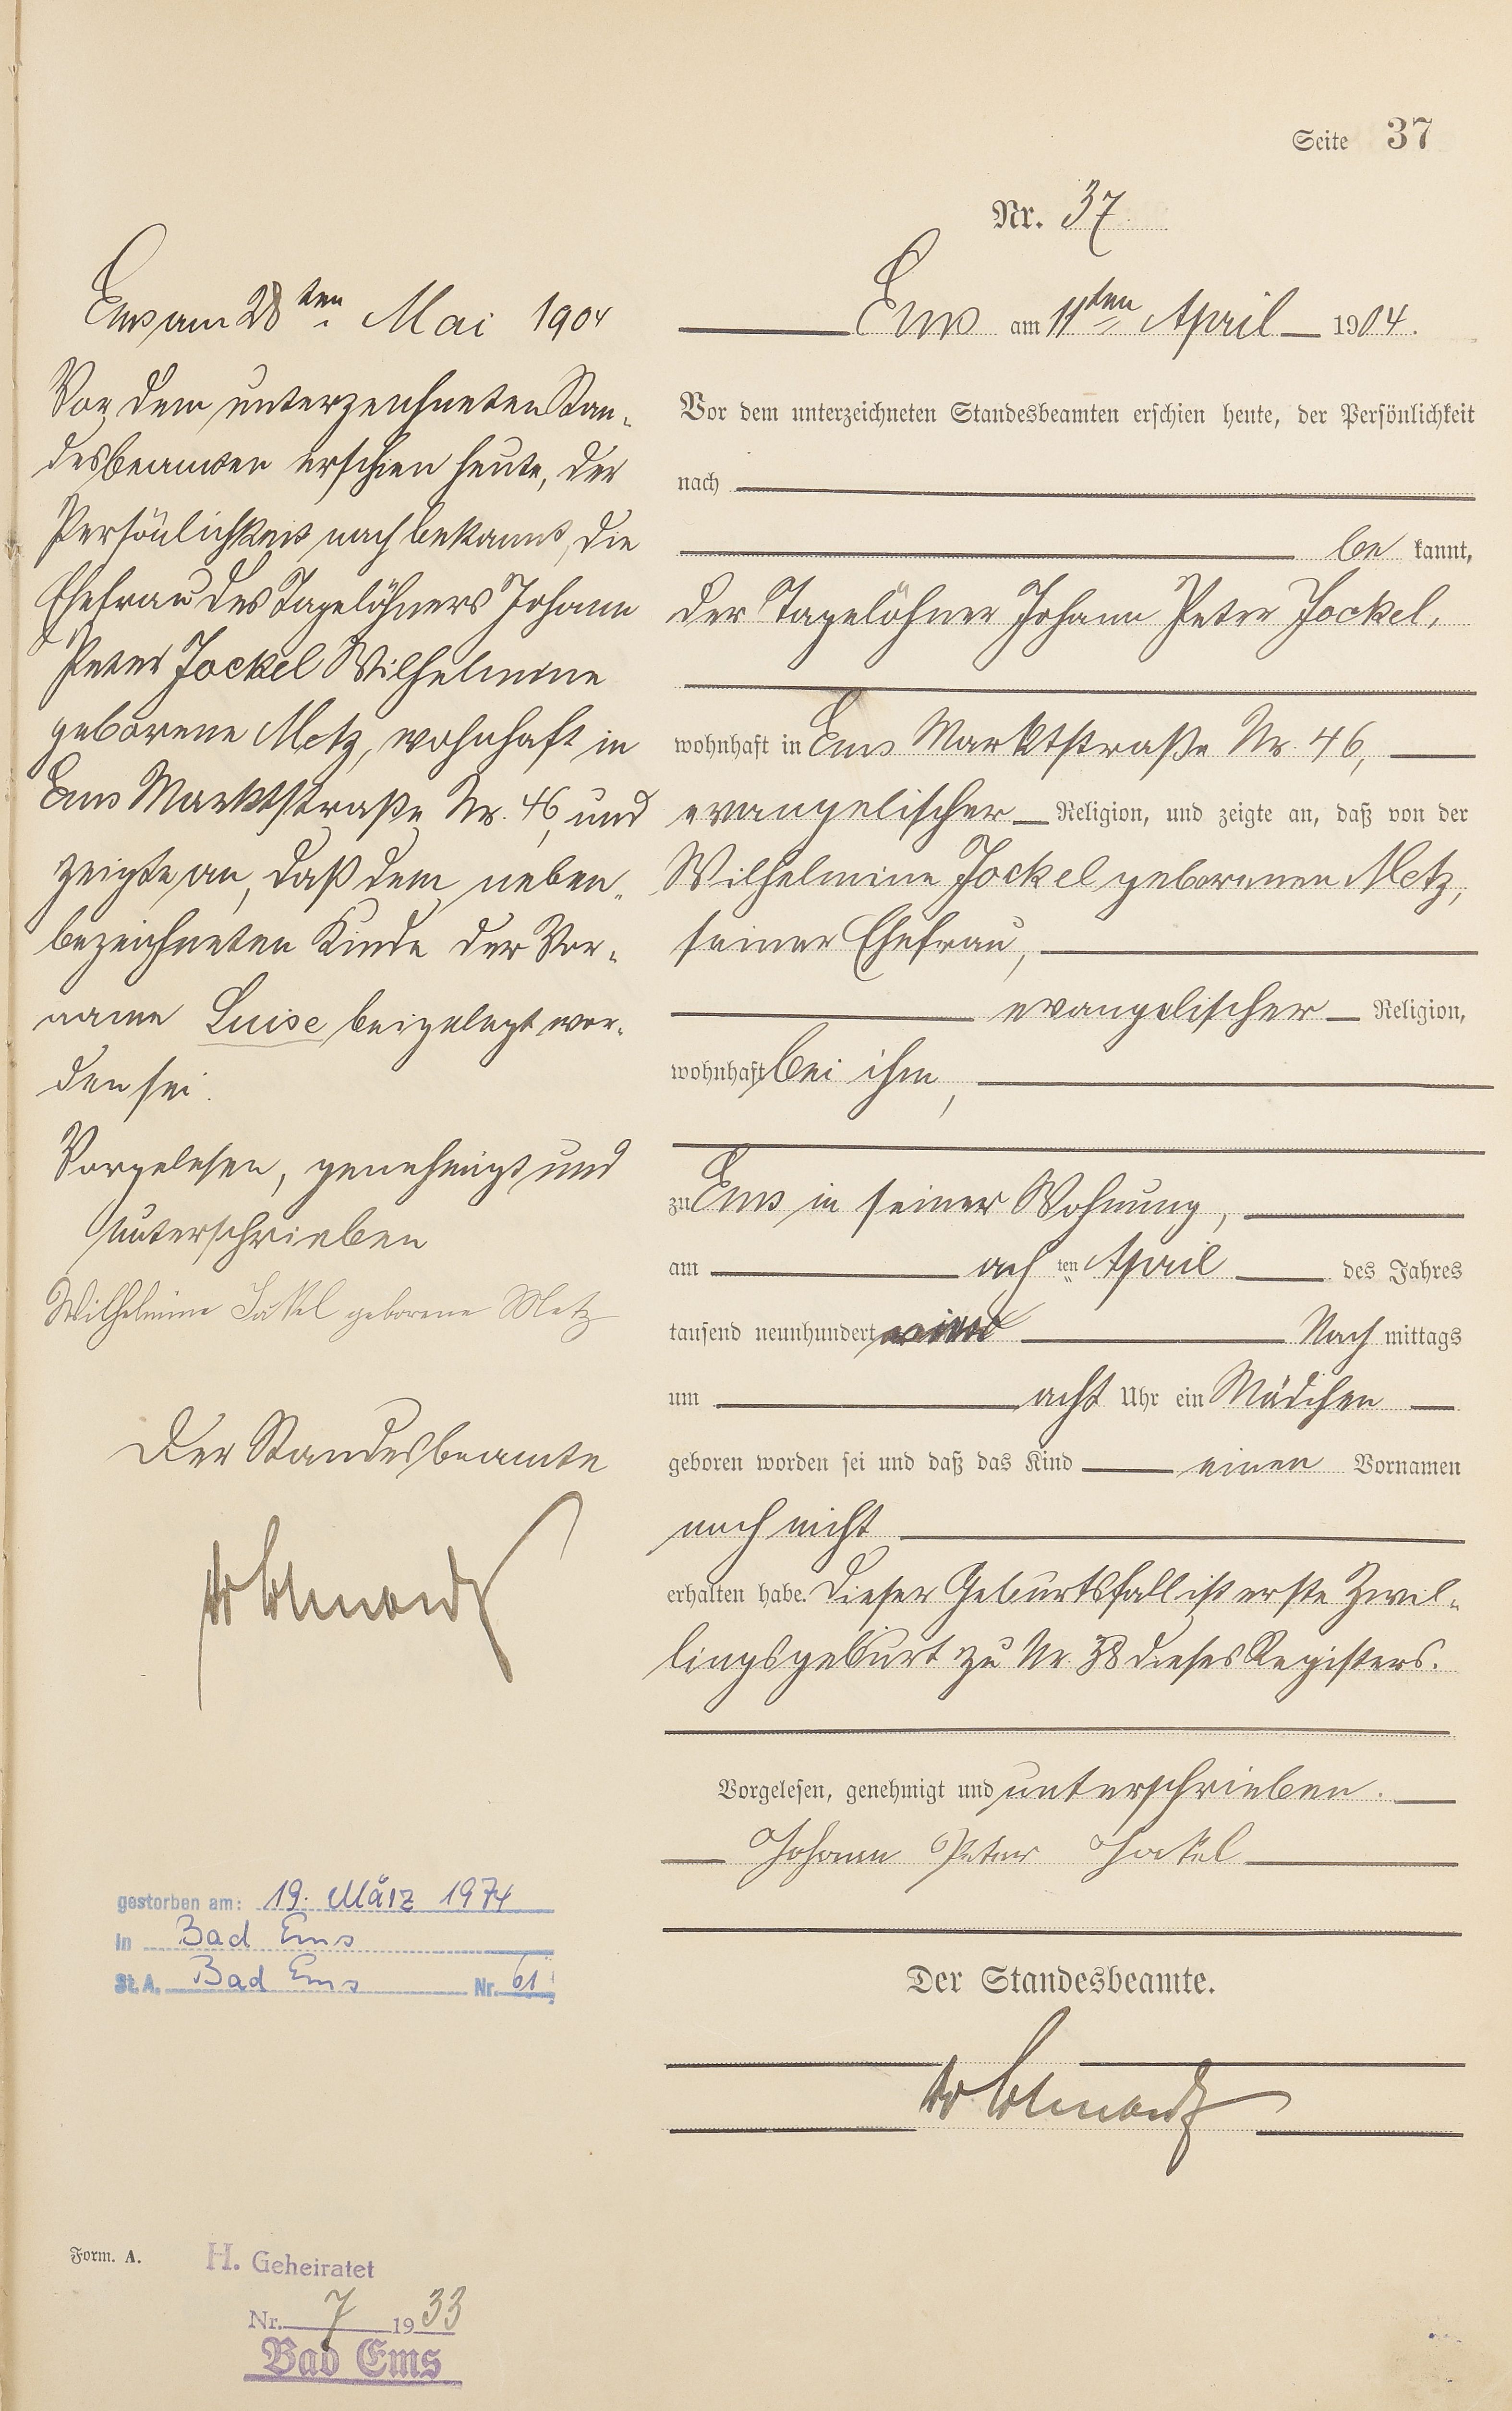 Seite 37
Nr. 37
Ems am 11ten April 1904.
Vor dem unterzeichneten Standesbeamten erschien heute, der Persönlichkeit
nach
be kannt,
der Tagelöhner Johann Peter Jockel,
wohnhaft in Ems Marktstraße Nr. 46,
evangelischer Religion, und zeigte an, daß von der
Wilhelmine Jockel geborenen Metz,
seiner Ehefrau,
evangelischer Religion,
wohnhaft bei ihm,
zu Ems in seiner Wohnung,
am ach ten April des Jahres
tausend neunhundert Nach mittags
um acht Uhr ein Mädchen
geboren worden sei und daß das Kind einen Vornamen
noch nicht
erhalten habe. Dieser Geburtsfall ist erste Zwil-
lingsgeburt zu Nr. 38 dieses Registers.
Vorgelesen, genehmigt und unterschrieben.
Johann Peter Jockel
Der Standesbeamte.
Ems am 28ten Mai 1904
Vor dem unterzeichneten Stan-
desbeamten erschien heute, der
Persönlichkeit nach bekannt, die
Ehefrau des Tagelöhners Johann
Peter Jockel Wilhelmine
geborene Metz, wohnhaft in
Ems Marktstraße Nr. 46, und
zeigte an, daß dem neben-
bezeichneten Kinde der Vor-
name Luise beigelegt wor-
den sei.
Vorgelesen, genehmigt und
unterschrieben
Wilhelmine Jakel geborene Metz
Der Standesbeamte
gestorben am: 19. März 1974
in Bad Ems
St. A. Bad Ems Nr. 61
Form. A.
H. Geheiratet
Nr. 7 1933
Bad Ems